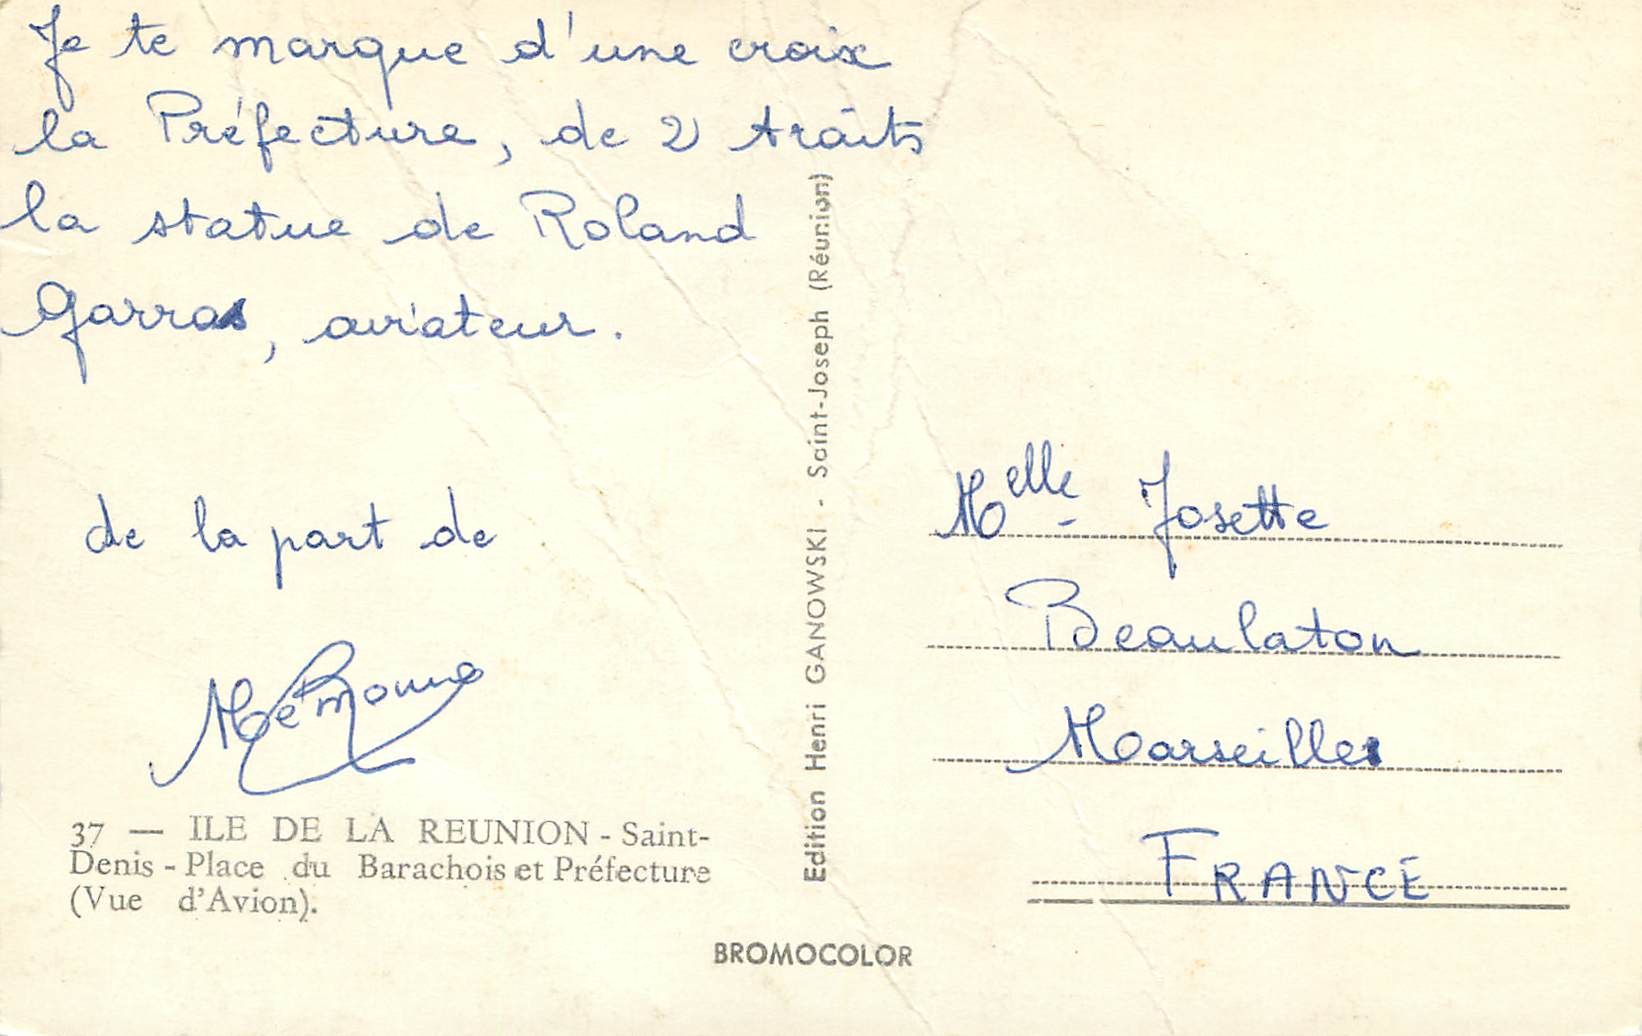 Je te marque d'une croix
la Préfecture, de 2 traits
la statue de Roland
Garros, aviateur.
de la part de
37 — ILE DE LA REUNION - Saint-
Denis - Place du Barachois et Préfecture
(Vue d'Avion).
Edition Henri GANOWSKI - Saint-Joseph (Réunion)
BROMOCOLOR
Melle - Josette
Beaulaton
Marseille
FRANCE